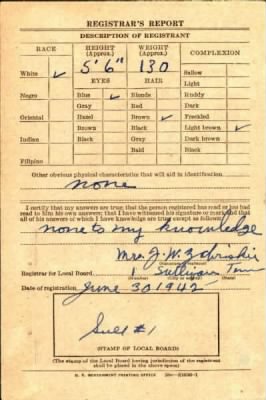 REGISTRAR'S REPORT
DESCRIPTION OF REGISTRANT
RACE HEIGHT (Approx.) WEIGHT (Approx.) COMPLEXION
5' 6" 130
White ✓ Sallow
EYES HAIR Light
Negro Blue ✓ Blonde Ruddy
Gray Red Dark
Oriental Hazel Brown ✓ Freckled
Brown Black Light brown ✓
Indian Black Gray Dark brown
Bald Black
Filipino
Other obvious physical characteristics that will aid in identification
none
I certify that my answers are true; that the person registered has read or has had
read to him his own answers; that I have witnessed his signature or mark and that
all of his answers of which I have knowledge are true except as follows:
none to my knowledge
Mrs. J. W.
Registrar for Local Board 1 Sullivan Tenn
Date of registration June 30 1942
Sull #1
(STAMP OF LOCAL BOARD)
(The stamp of the Local Board having jurisdiction of the registrant
shall be placed in the above space.)
U. S. GOVERNMENT PRINTING OFFICE